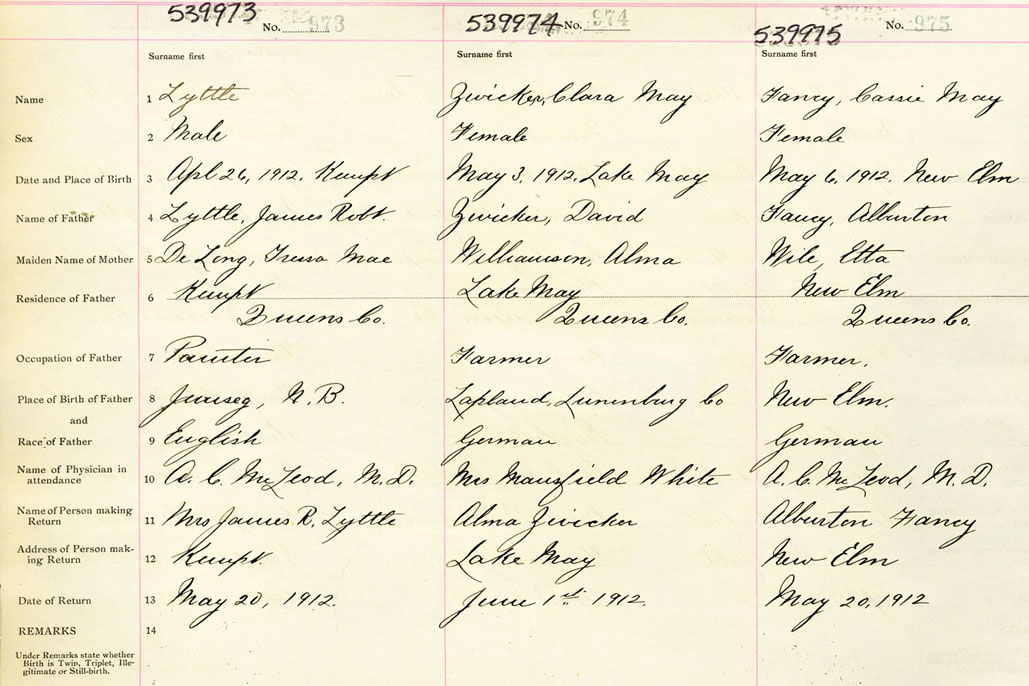 539973 No. 973 539974 No. 974 539975 No. 975
Surname first Surname first Surname first
Name 1 Lyttle Zwicker, Clara May Fancy, Cassie May
Sex 2 Male Female Female
Date and Place of Birth 3 Apl 26, 1912. Kempt May 3, 1912, Lake May May 6, 1912. New Elm
Name of Father 4 Lyttle, James Robt. Zwicker, David Fancy, Alburton
Maiden Name of Mother 5 De Long, Mae Williamson, Alma Wile, Etta
Residence of Father 6 Kempt Lake May New Elm
Queens Co. Queens Co. Queens Co.
Occupation of Father 7 Painter Farmer Farmer.
Place of Birth of Father 8 Jemseg, N.B. Lapland, Lunenburg Co New Elm.
and
Race of Father 9 English German German
Name of Physician in
attendance 10 A. C. McLeod, M.D. Mrs Mansfield White A. C. McLeod, M.D.
Name of Person making
Return 11 Mrs James R. Lyttle Alma Zwicker Alburton Fancy
Address of Person mak-
ing Return 12 Kempt. Lake May New Elm
Date of Return 13 May 20, 1912. June 1st 1912. May 20, 1912
REMARKS 14
Under Remarks state whether
Birth is Twin, Triplet, Ille-
gitimate or Still-birth.